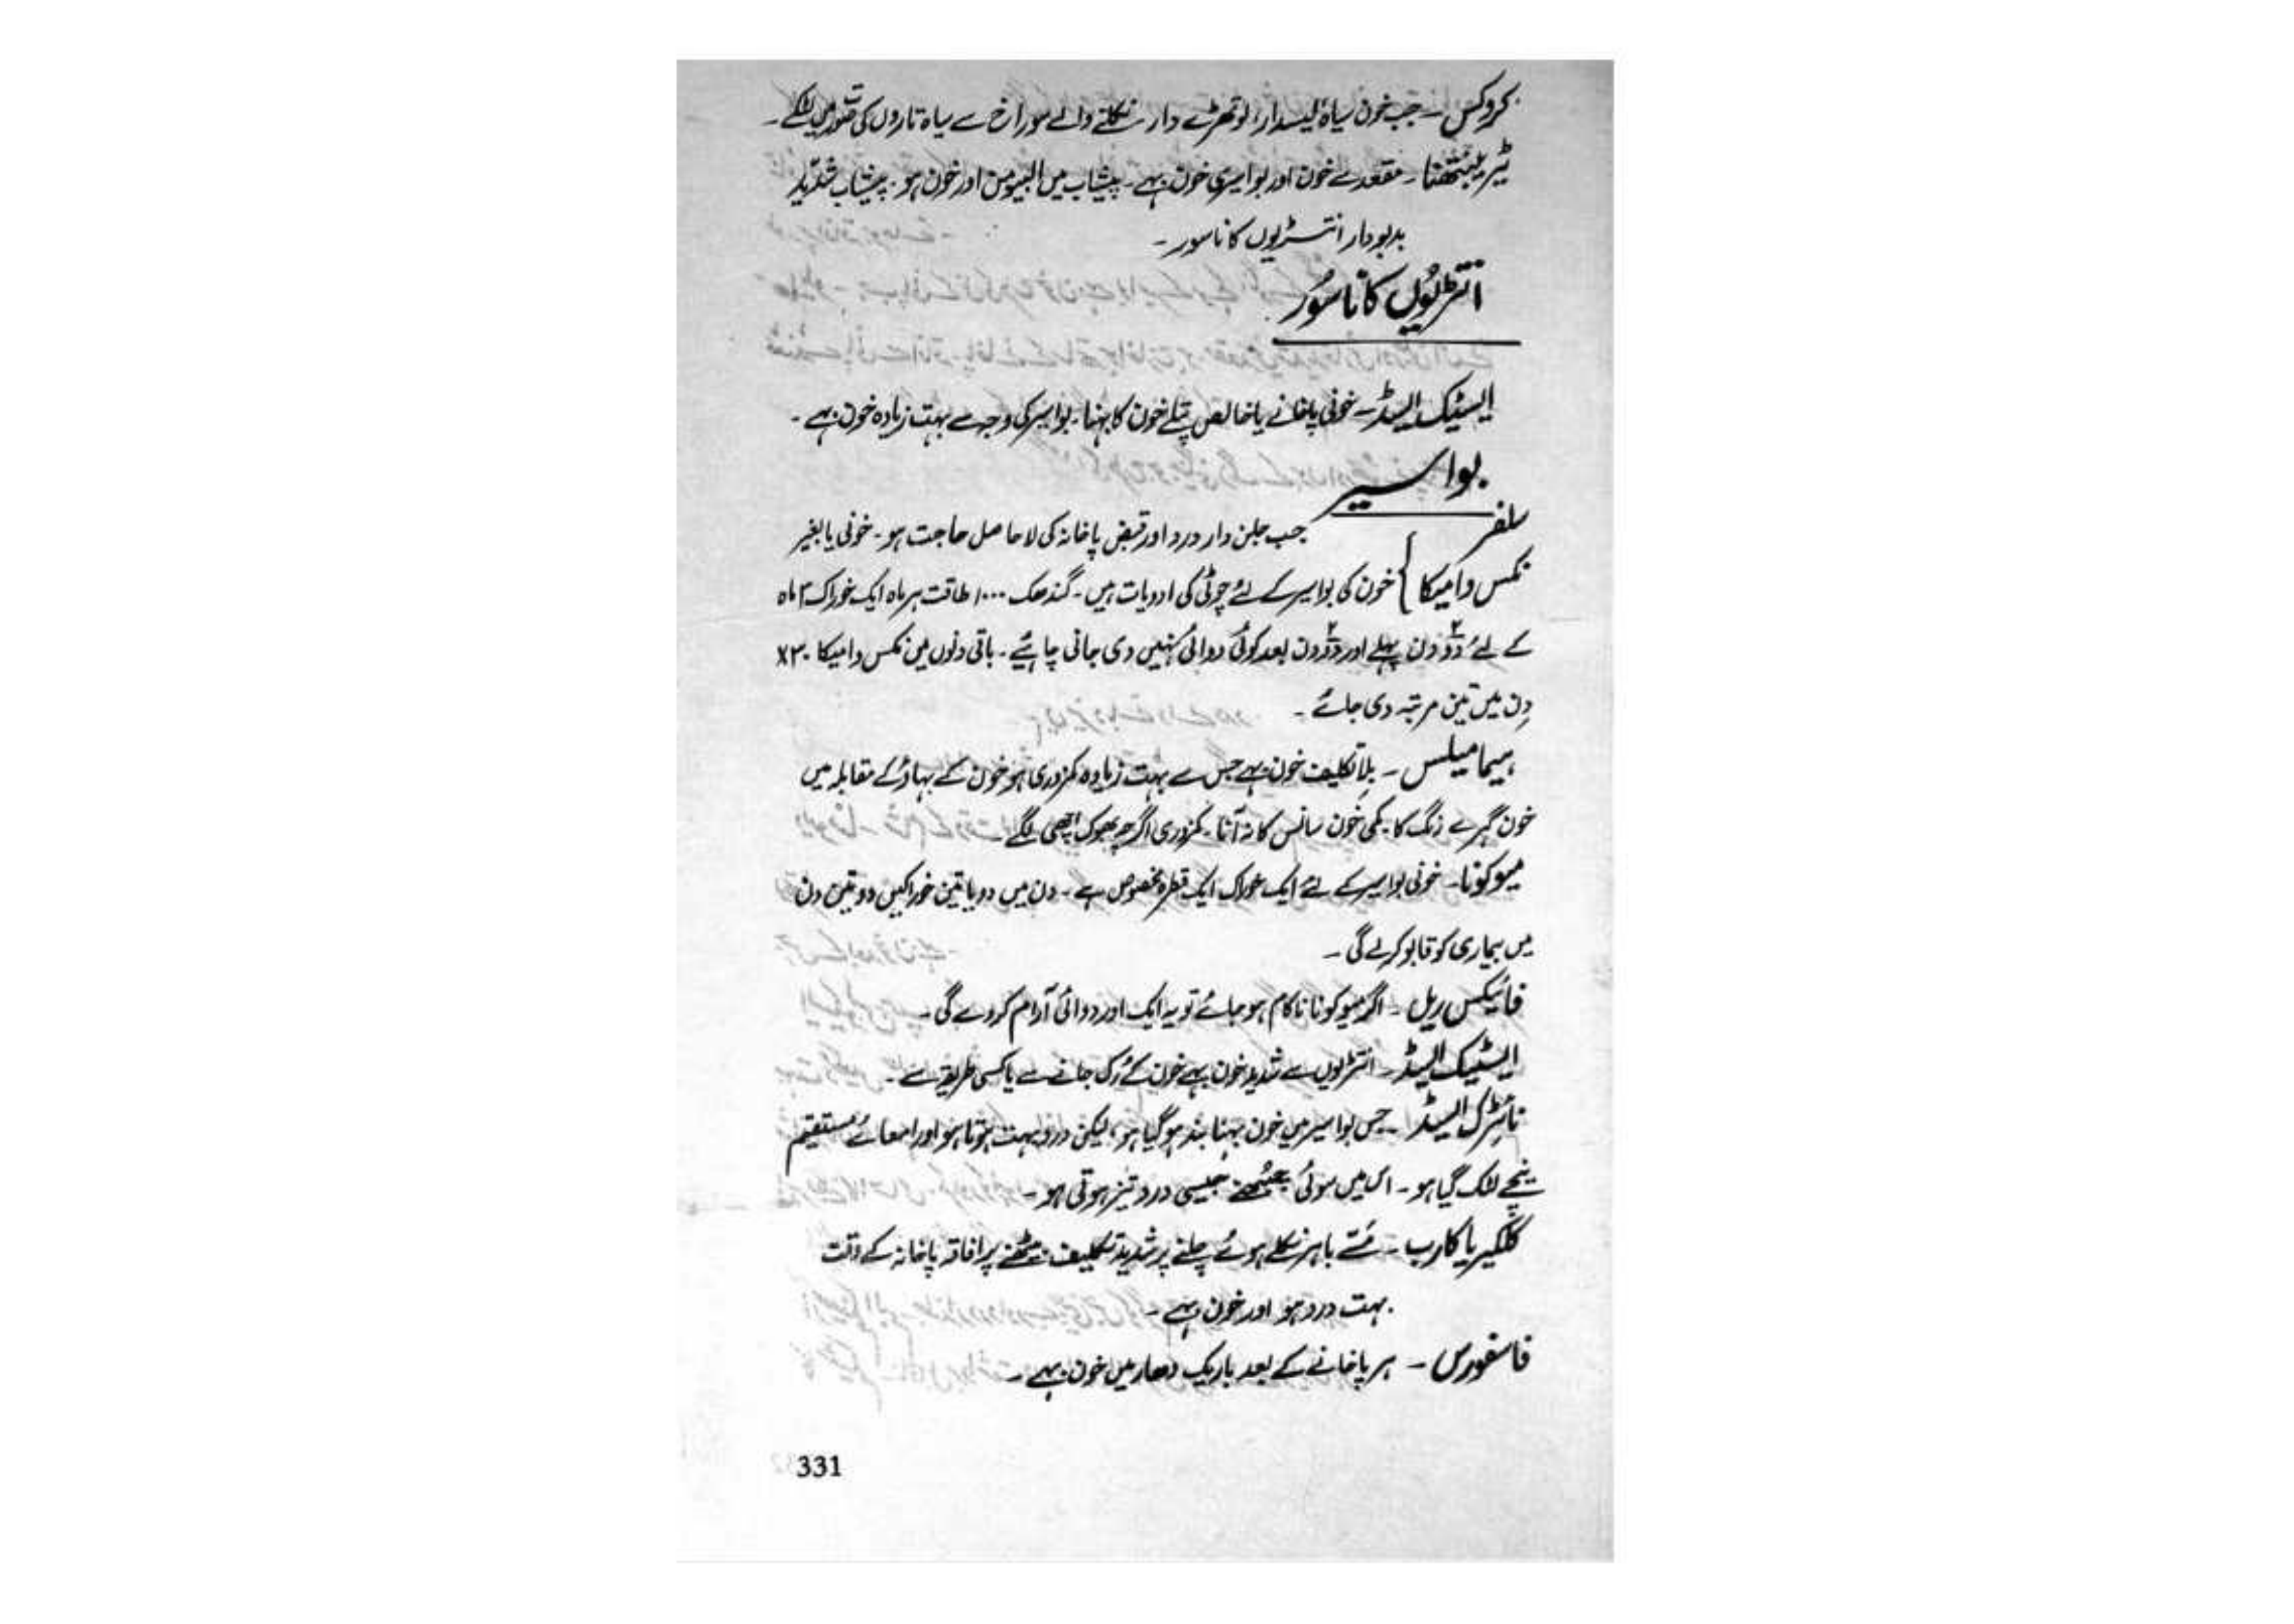 کروکس ۔ جب خون سیاہ لیسدار، لوتھڑے دار نکلنے والے سوراخ سے سیاہ تاروں کی صورت میں لٹکے ۔
ٹیریبنتھنا ۔ مقعد سے خون اور بواسیری خون بہے ۔ پیشاب میں البیومن اور خون ہو ۔ پیشاب شدید
بدبودار انتڑیوں کا ناسور ۔
انتڑیوں کا ناسور
ایسٹیک ایسڈ ۔ خونی پاخانے یا خالص پتلے خون کا بہنا ۔ بواسیر کی وجہ سے بہت زیادہ خون بہے ۔
بواسیر
سلفر جب جلن دار درد اور قبض پاخانہ کی لاحاصل حاجت ہو ۔ خونی یا بغیر
نکس وامیکا } خون کی بواسیر کے لئے چوٹی کی ادویات ہیں ۔ گندھک ۱۰۰۰ طاقت ہر ماہ ایک خوراک ۳ ماہ
کے لئے دو ۲ دن پہلے اور دو ۲ دن بعد کوئی دوائی نہیں دی جانی چاہئے ۔ باقی دنوں میں نکس وامیکا ۳۰x
دن میں تین مرتبہ دی جائے ۔
ہیمامیلس ۔ بلا تکلیف خون بہے جس سے بہت زیادہ کمزوری ہو خون کے بہاؤ کے مقابلہ میں
خون گہرے رنگ کا ۔ کمی خون سانس کا نہ آنا ۔ کمزوری اگرچہ بھوک اچھی لگے ۔
میوکونا ۔ خونی بواسیر کے لئے ایک خوراک ایک قطرہ مخصوص ہے ۔ دن میں دو یا تین خوراکیں دو تین دن
میں بیماری کو قابو کرلے گی ۔
فائیکس ریل ۔ اگر میوکونا ناکام ہو جائے تو یہ ایک اور دوائی آرام کر دے گی ۔
ایسٹیک ایسڈ ۔ انتڑیوں سے شدید خون بہے خون کے رک جانے سے یا کسی طریقہ سے ۔
نائٹرک ایسڈ ۔ جس بواسیر میں خون بہنا بند ہو گیا ہو، لیکن درد بہت ہوتا ہو اور امعائے مستقیم
نیچے لٹک گیا ہو ۔ اس میں سوئی چبھنے جیسی درد تیز ہوتی ہو ۔
کلکیریا کارب ۔ مسّے باہر نکلے ہوئے چلنے پر شدید تکلیف بیٹھنے پر افاقہ پاخانہ کے وقت
بہت درد ہو اور خون بہے ۔
فاسفورس ۔ ہر پاخانے کے بعد باریک دھار میں خون بہے ۔
331